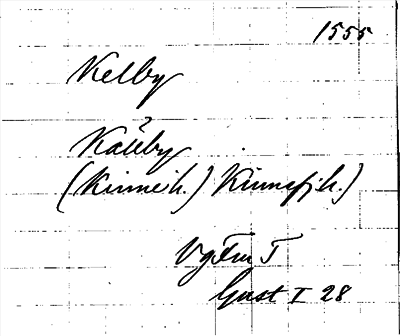 1555
Kelby
Källby
(Kinneh.) Kinnefjh.)
VgFmT
Gust I 28